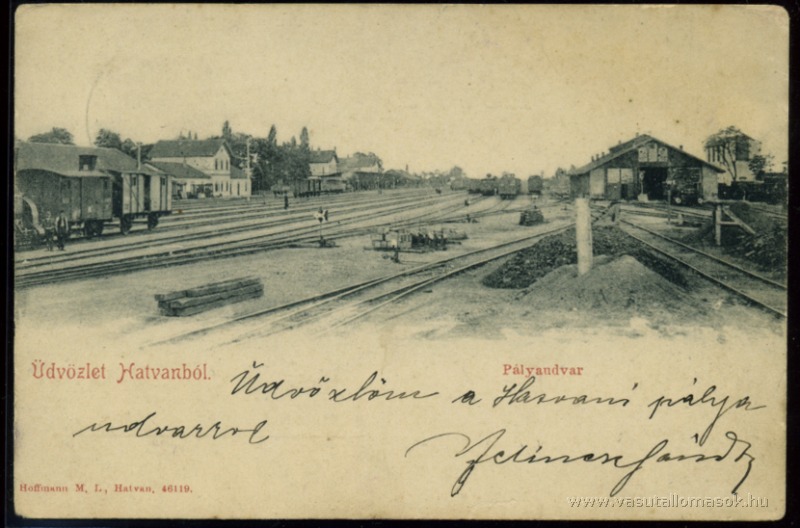 Üdvözlet Hatvanból.
Pályaudvar
Üdvözlöm a Hatvani pálya
udvarrol
Hoffmann M. L., Hatvan, 46119.
© www.vasutallomasok.hu